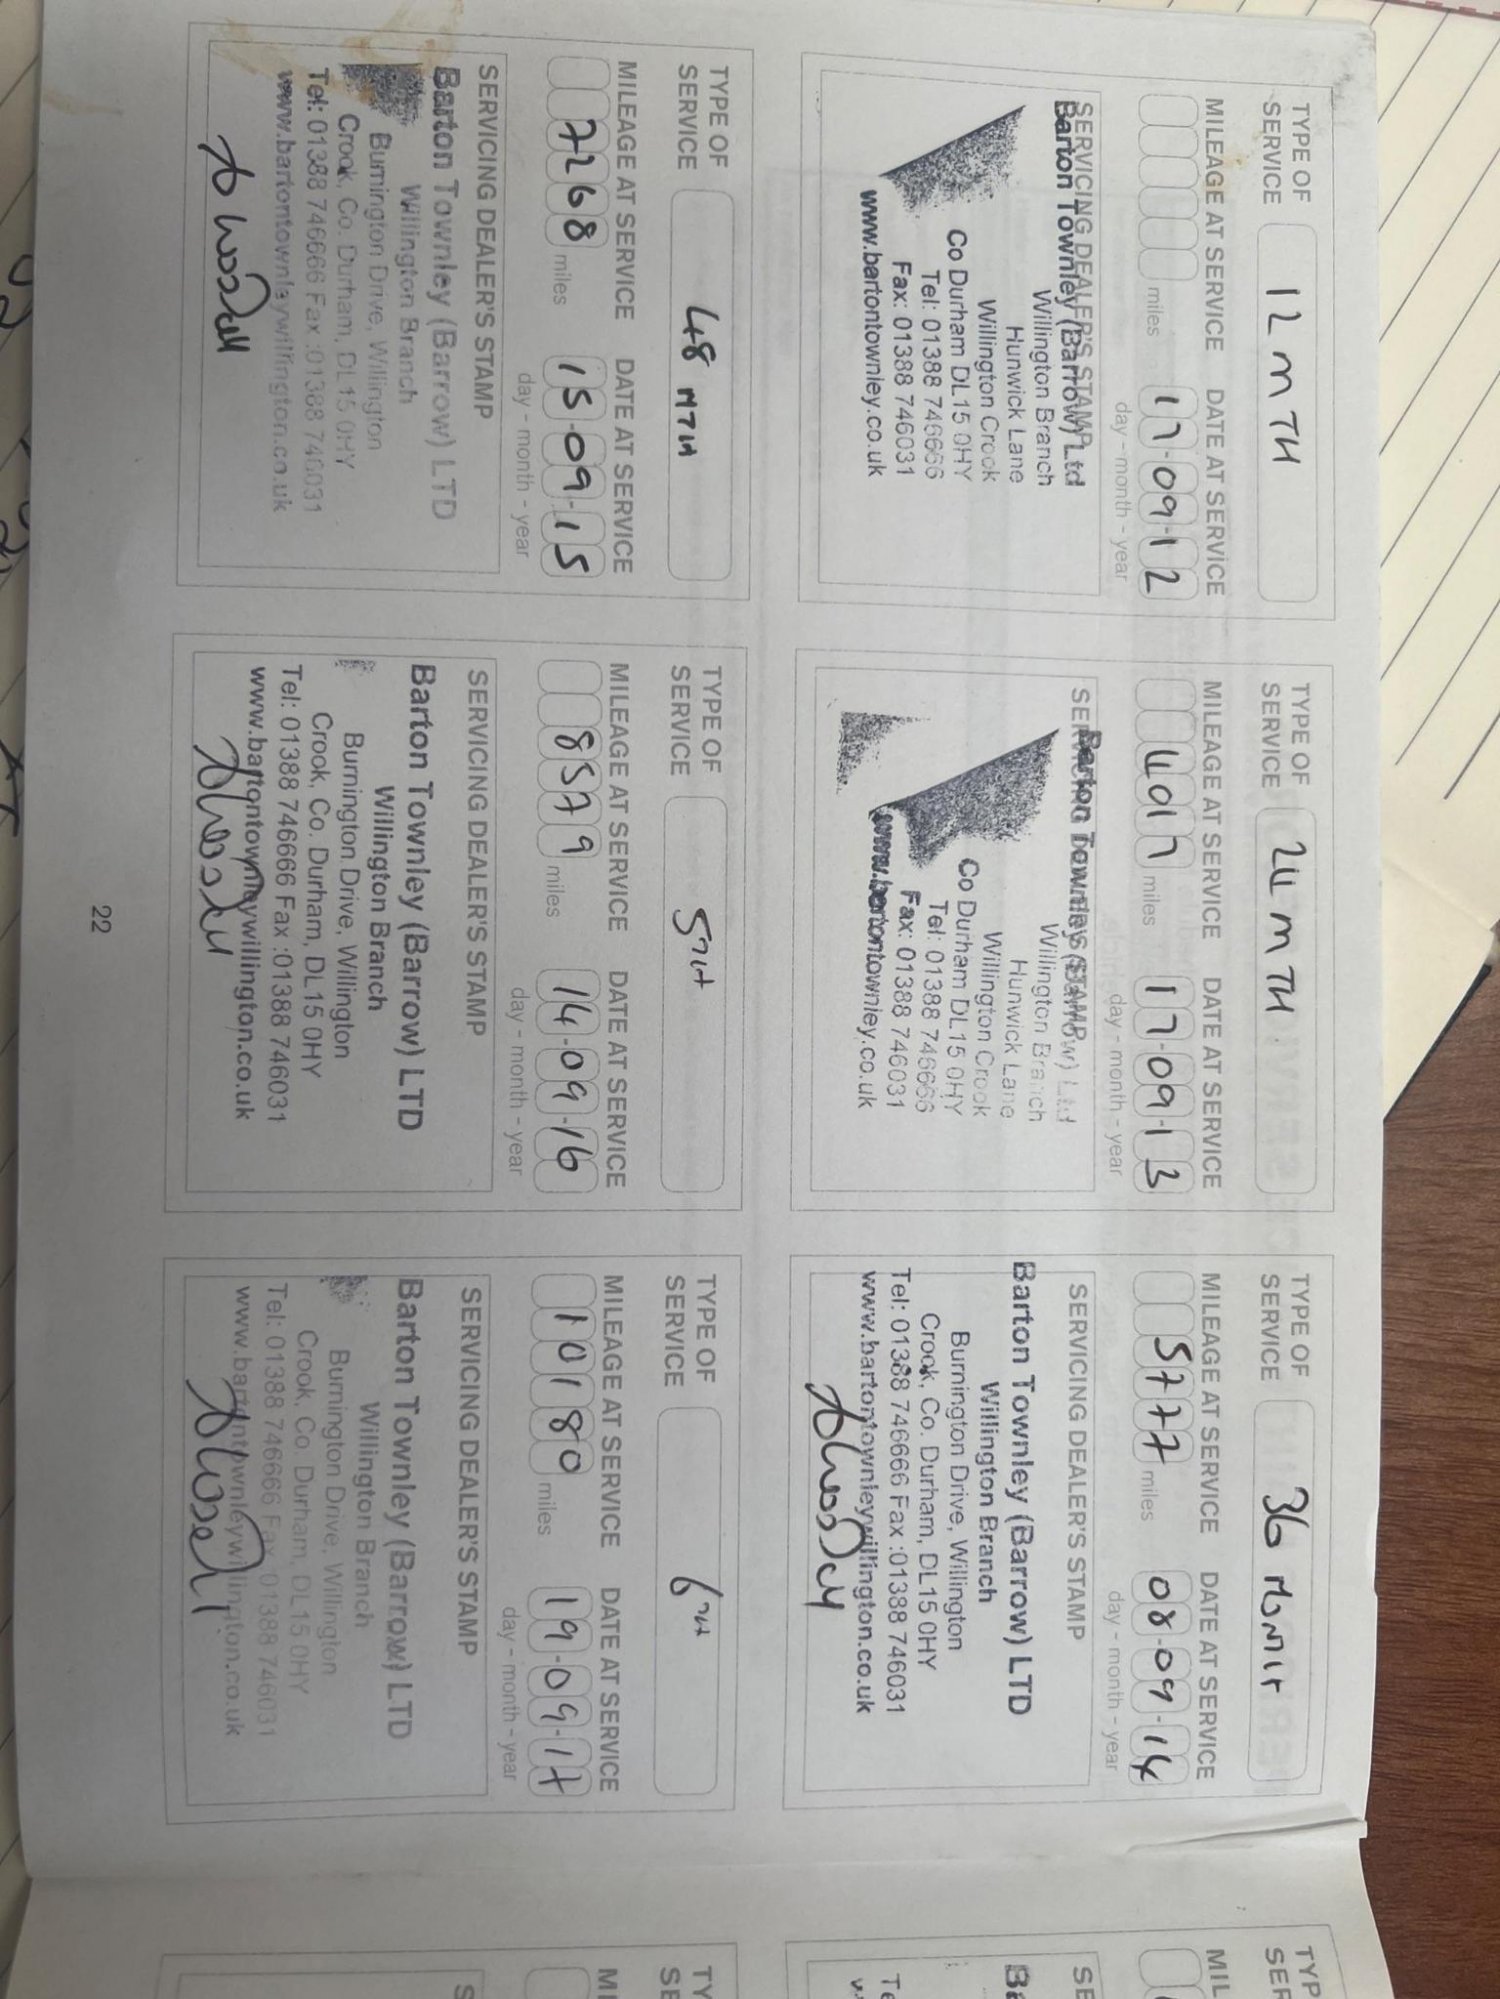 TYPE OF
SERVICE
12 MTH
MILEAGE AT SERVICE
DATE AT SERVICE
miles
17-09-12
day - month - year
SERVICING DEALER'S STAMP
Barton Townley (Barrow) Ltd
Willington Branch
Hunwick Lane
Willington Crook
Co Durham DL15 0HY
Tel: 01388 746666
Fax: 01388 746031
www.bartontownley.co.uk
TYPE OF
SERVICE
24 MTH
MILEAGE AT SERVICE
DATE AT SERVICE
4017 miles
17-09-13
day - month - year
SERVICING DEALER'S STAMP
Barton Townley (Barrow) Ltd
Willington Branch
Hunwick Lane
Willington Crook
Co Durham DL15 0HY
Tel: 01388 746666
Fax: 01388 746031
www.bartontownley.co.uk
TYPE OF
SERVICE
36 MONTH
MILEAGE AT SERVICE
DATE AT SERVICE
5777 miles
08-09-14
day - month - year
SERVICING DEALER'S STAMP
Barton Townley (Barrow) LTD
Willington Branch
Burnington Drive, Willington
Crook, Co. Durham, DL15 0HY
Tel: 01388 746666 Fax :01388 746031
www.bartontownleywillington.co.uk
TYPE OF
SERVICE
48 MTH
MILEAGE AT SERVICE
DATE AT SERVICE
7268 miles
15-09-15
day - month - year
SERVICING DEALER'S STAMP
Barton Townley (Barrow) LTD
Willington Branch
Burnington Drive, Willington
Crook, Co. Durham, DL15 0HY
Tel: 01388 746666 Fax :01388 746031
www.bartontownleywillington.co.uk
TYPE OF
SERVICE
5TH
MILEAGE AT SERVICE
DATE AT SERVICE
8579 miles
14-09-16
day - month - year
SERVICING DEALER'S STAMP
Barton Townley (Barrow) LTD
Willington Branch
Burnington Drive, Willington
Crook, Co. Durham, DL15 0HY
Tel: 01388 746666 Fax :01388 746031
www.bartontownleywillington.co.uk
TYPE OF
SERVICE
6TH
MILEAGE AT SERVICE
DATE AT SERVICE
10180 miles
19-09-17
day - month - year
SERVICING DEALER'S STAMP
Barton Townley (Barrow) LTD
Willington Branch
Burnington Drive, Willington
Crook, Co. Durham, DL15 0HY
Tel: 01388 746666 Fax :01388 746031
www.bartontownleywillington.co.uk
22